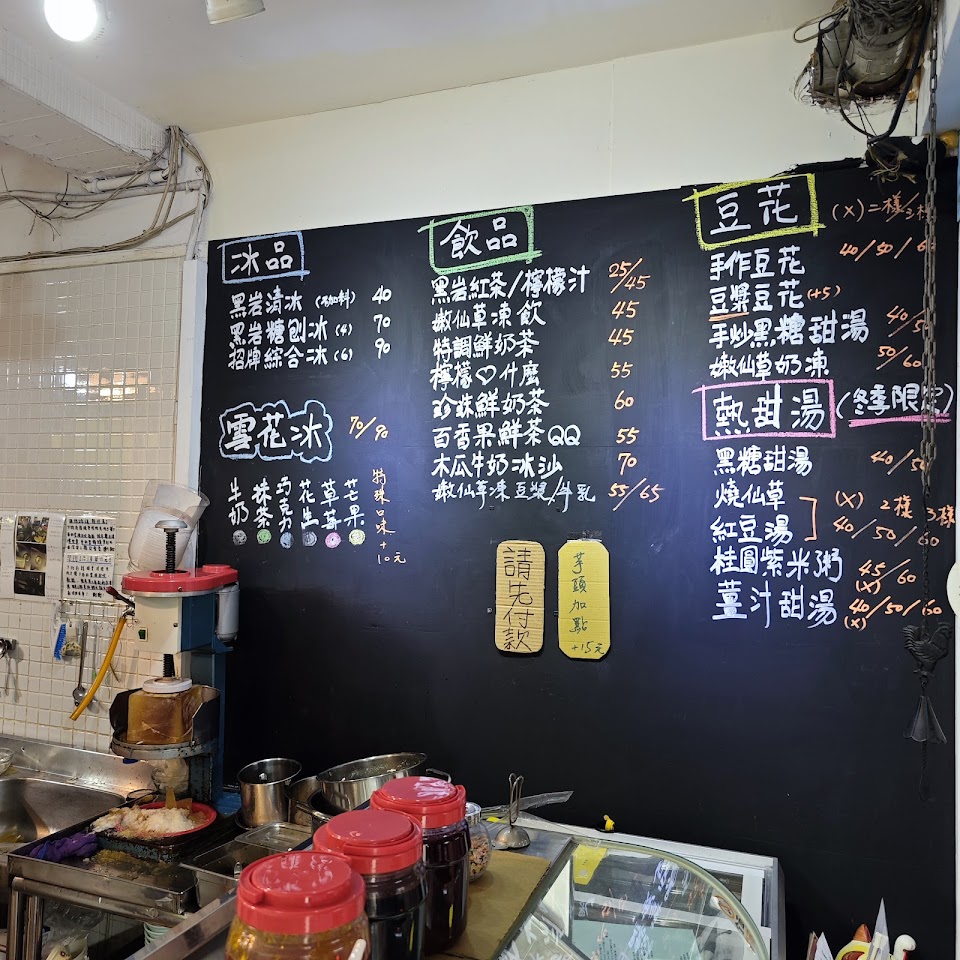 冰品
黑岩清冰 (不加料) 40
黑岩糖刨冰 (4) 70
招牌綜合冰 (6) 90
雪花冰 70/90
牛奶
抹茶
巧克力
花生
草莓
芒果
特殊口味+10元
飲品
黑岩紅茶/檸檬汁 25/45
嫩仙草凍飲 45
特調鮮奶茶 45
檸檬♡什麼 55
珍珠鮮奶茶 60
百香果鮮茶QQ 55
木瓜牛奶冰沙 70
嫩仙草凍豆漿/牛乳 55/65
請先付款
芋頭加點+15元
豆花 (X)二樣/3樣
40/50/60
手作豆花
豆漿豆花 (+5)
手炒黑糖甜湯 40/5
嫩仙草奶凍 50/60
熱甜湯 (冬季限定)
黑糖甜湯 40/50
燒仙草 (X) 2樣 3樣
紅豆湯 40/50/60
桂圓紫米粥 45/60
(X)
薑汁甜湯 40/50/60
(X)